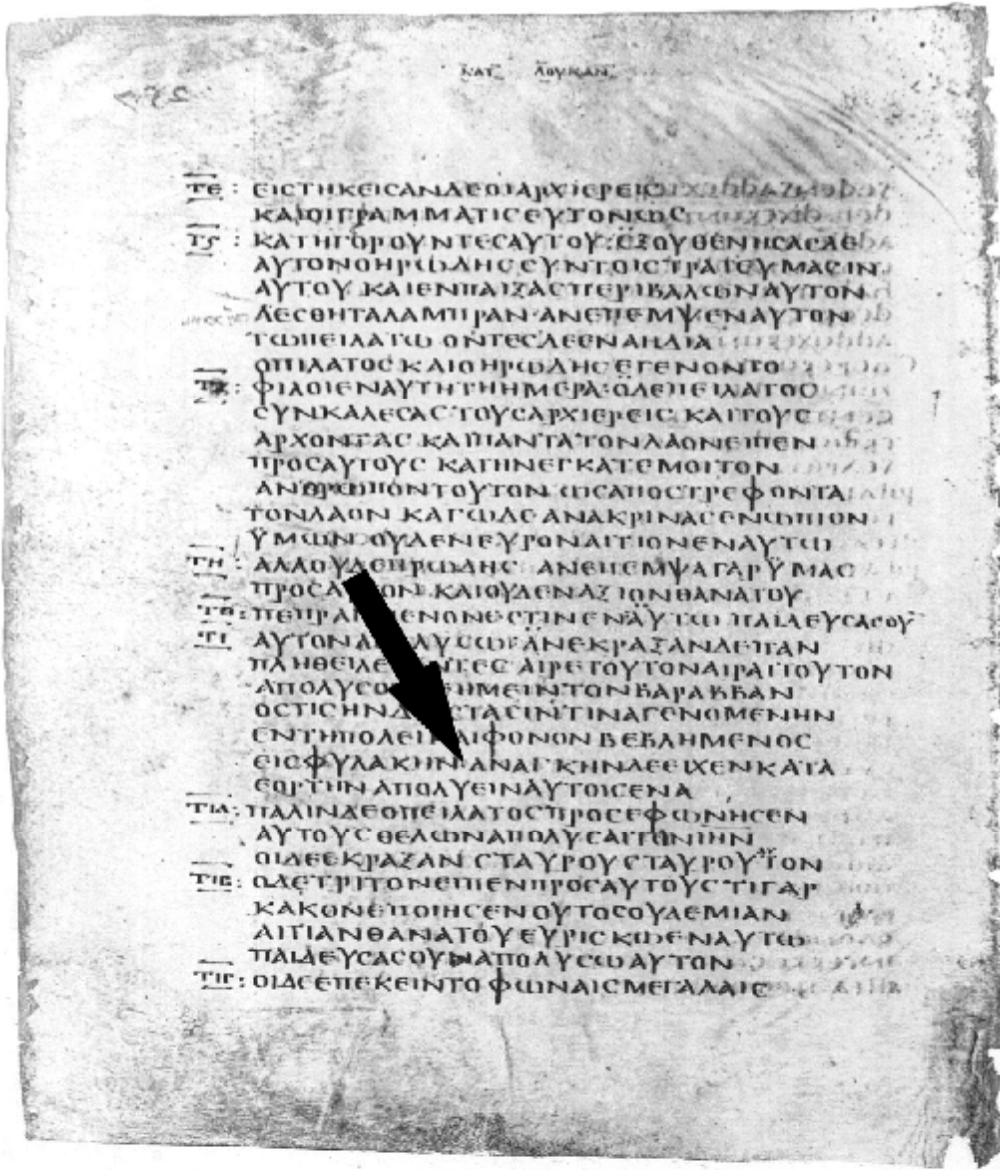 ΚΑΤ ΛΟΥΚΑΝ
ΤΕ : ΕΙΣΤΗΚΕΙΣΑΝΔΕΟΙΑΡΧΙΕΡΕΙΣ
ΚΑΙΟΙΓΡΑΜΜΑΤΙΣΕΥΤΟΝΩΣ
ΤϚ : ΚΑΤΗΓΟΡΟΥΝΤΕΣΑΥΤΟΥ:ΕΞΟΥΘΕΝΗΣΑΣΔΕ
ΑΥΤΟΝΟΗΡΩΔΗΣΣΥΝΤΟΙΣΤΡΑΤΕΥΜΑΣΙΝ
ΑΥΤΟΥ ΚΑΙΕΝΠΑΙΖΑΣΠΕΡΙΒΑΛΩΝΑΥΤΟΝ
ΛΕΣΘΗΤΑΛΑΜΠΡΑΝ·ΑΝΕΠΕΜΨΕΝΑΥΤΟΝ
ΤΩΠΕΙΛΑΤΩ ΟΝΤΕΣΔΕΕΝΑΗΔΙΑ
ΟΠΙΛΑΤΟΣΚΑΙΟΗΡΩΔΗΣΕΓΕΝΟΝΤΟ
ΤΖ : ΦΙΛΟΙΕΝΑΥΤΗΤΗΗΜΕΡΑ:ΟΔΕΠΕΙΛΑΤΟΣ
ΣΥΝΚΑΛΕΣΑΣΤΟΥΣΑΡΧΙΕΡΕΙΣ ΚΑΙΤΟΥΣ
ΑΡΧΟΝΤΑΣ ΚΑΙΠΑΝΤΑΤΟΝΛΑΟΝΕΙΠΕΝ
ΠΡΟΣΑΥΤΟΥΣ ΚΑΤΗΝΕΓΚΑΤΕΜΟΙΤΟΝ
ΑΝΘΡΩΠΟΝΤΟΥΤΟΝ ΩΣΑΠΟΣΤΡΕΦΟΝΤΑ
ΤΟΝΛΑΟΝ ΚΑΓΩΔΕΑΝΑΚΡΙΝΑΣΕΝΩΠΙΟΝ
ΫΜΩΝ ΟΥΔΕΝΕΥΡΟΝΑΙΤΙΟΝΕΝΑΥΤΩ
ΤΗ : ΑΛΛΟΥΔΕΗΡΩΔΗΣ ΑΝΕΠΕΜΨΑΓΑΡΫΜΑΣ
ΠΡΟΣΑ ΟΝ ΚΑΙΟΥΔΕΝΑΞΙΟΝΘΑΝΑΤΟΥ
ΤΘ : ΠΕΠΡΑ ΕΝΟΝΕΣΤΙΝΕΝΑΥΤΩ ΠΑΙΔΕΥΣΑΣΟΥ
ΤΙ ΑΥΤΟΝΑ ΛΥΣΩ:ΑΝΕΚΡΑΞΑΝΔΕΠΑΝ
ΠΛΗΘΕΙΛΕ ΝΤΕΣ ΑΙΡΕΤΟΥΤΟΝΑΙΡΑΙΤΟΥΤΟΝ
ΑΠΟΛΥΣΟ ΗΜΕΙΝΤΟΝΒΑΡΑΒΒΑΝ
ΟΣΤΙΣΗΝΔ ΤΑΣΙΝΤΙΝΑΓΕΝΟΜΕΝΗΝ
ΕΝΤΗΠΟΛΕΙ ΑΙΦΟΝΟΝ ΒΕΒΛΗΜΕΝΟΣ
ΕΙΣΦΥΛΑΚΗΝ ΑΝΑΓΚΗΝΔΕΕΙΧΕΝΚΑΤΑ
ΕΟΡΤΗΝ ΑΠΟΛΥΕΙΝΑΥΤΟΙΣΕΝΑ
ΤΙΑ : ΠΑΛΙΝΔΕΟΠΕΙΛΑΤΟΣΠΡΟΣΕΦΩΝΗΣΕΝ
ΑΥΤΟΥΣΘΕΛΩΝΑΠΟΛΥΣΑΙΤΟΝΙΗΝ
ΟΙΔΕΕΚΡΑΞΑΝ ΣΤΑΥΡΟΥΣΤΑΥΡΟΥΤΟΝ
ΤΙΒ : ΟΔΕΤΡΙΤΟΝΕΙΠΕΝΠΡΟΣΑΥΤΟΥΣΤΙΓΑΡ
ΚΑΚΟΝΕΠΟΙΗΣΕΝΟΥΤΟΣΟΥΔΕΜΙΑΝ
ΑΙΤΙΑΝΘΑΝΑΤΟΥΕΥΡΙΣΚΩΕΝΑΥΤΩ
ΠΑΙΔΕΥΣΑΣΟΥΝΑΠΟΛΥΣΩΑΥΤΟΝ
ΤΙΓ : ΟΙΔΕΕΠΕΚΕΙΝΤΟΦΩΝΑΙΣΜΕΓΑΛΑΙΣ